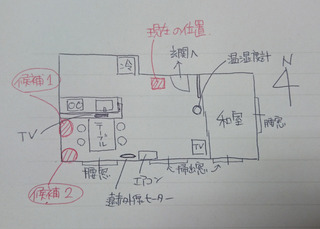 現在の位置
玄関入
冷
温湿度計
N
候補1
TV
テーブル
和室
腰窓
TV
候補2
腰窓
エアコン
掃出窓
遠赤外線ヒーター